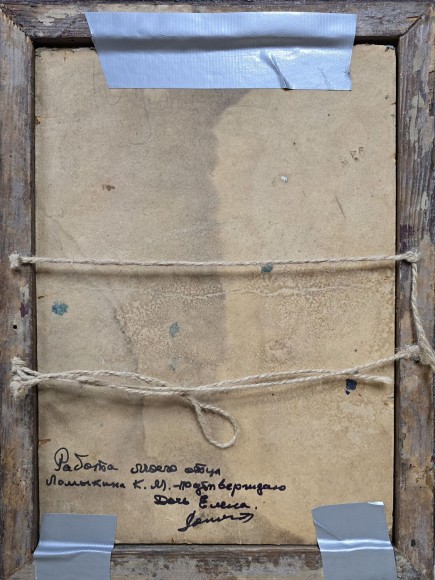 Работа моего отца
Ломыкина К. М. - подтверждаю
Дочь Елена.